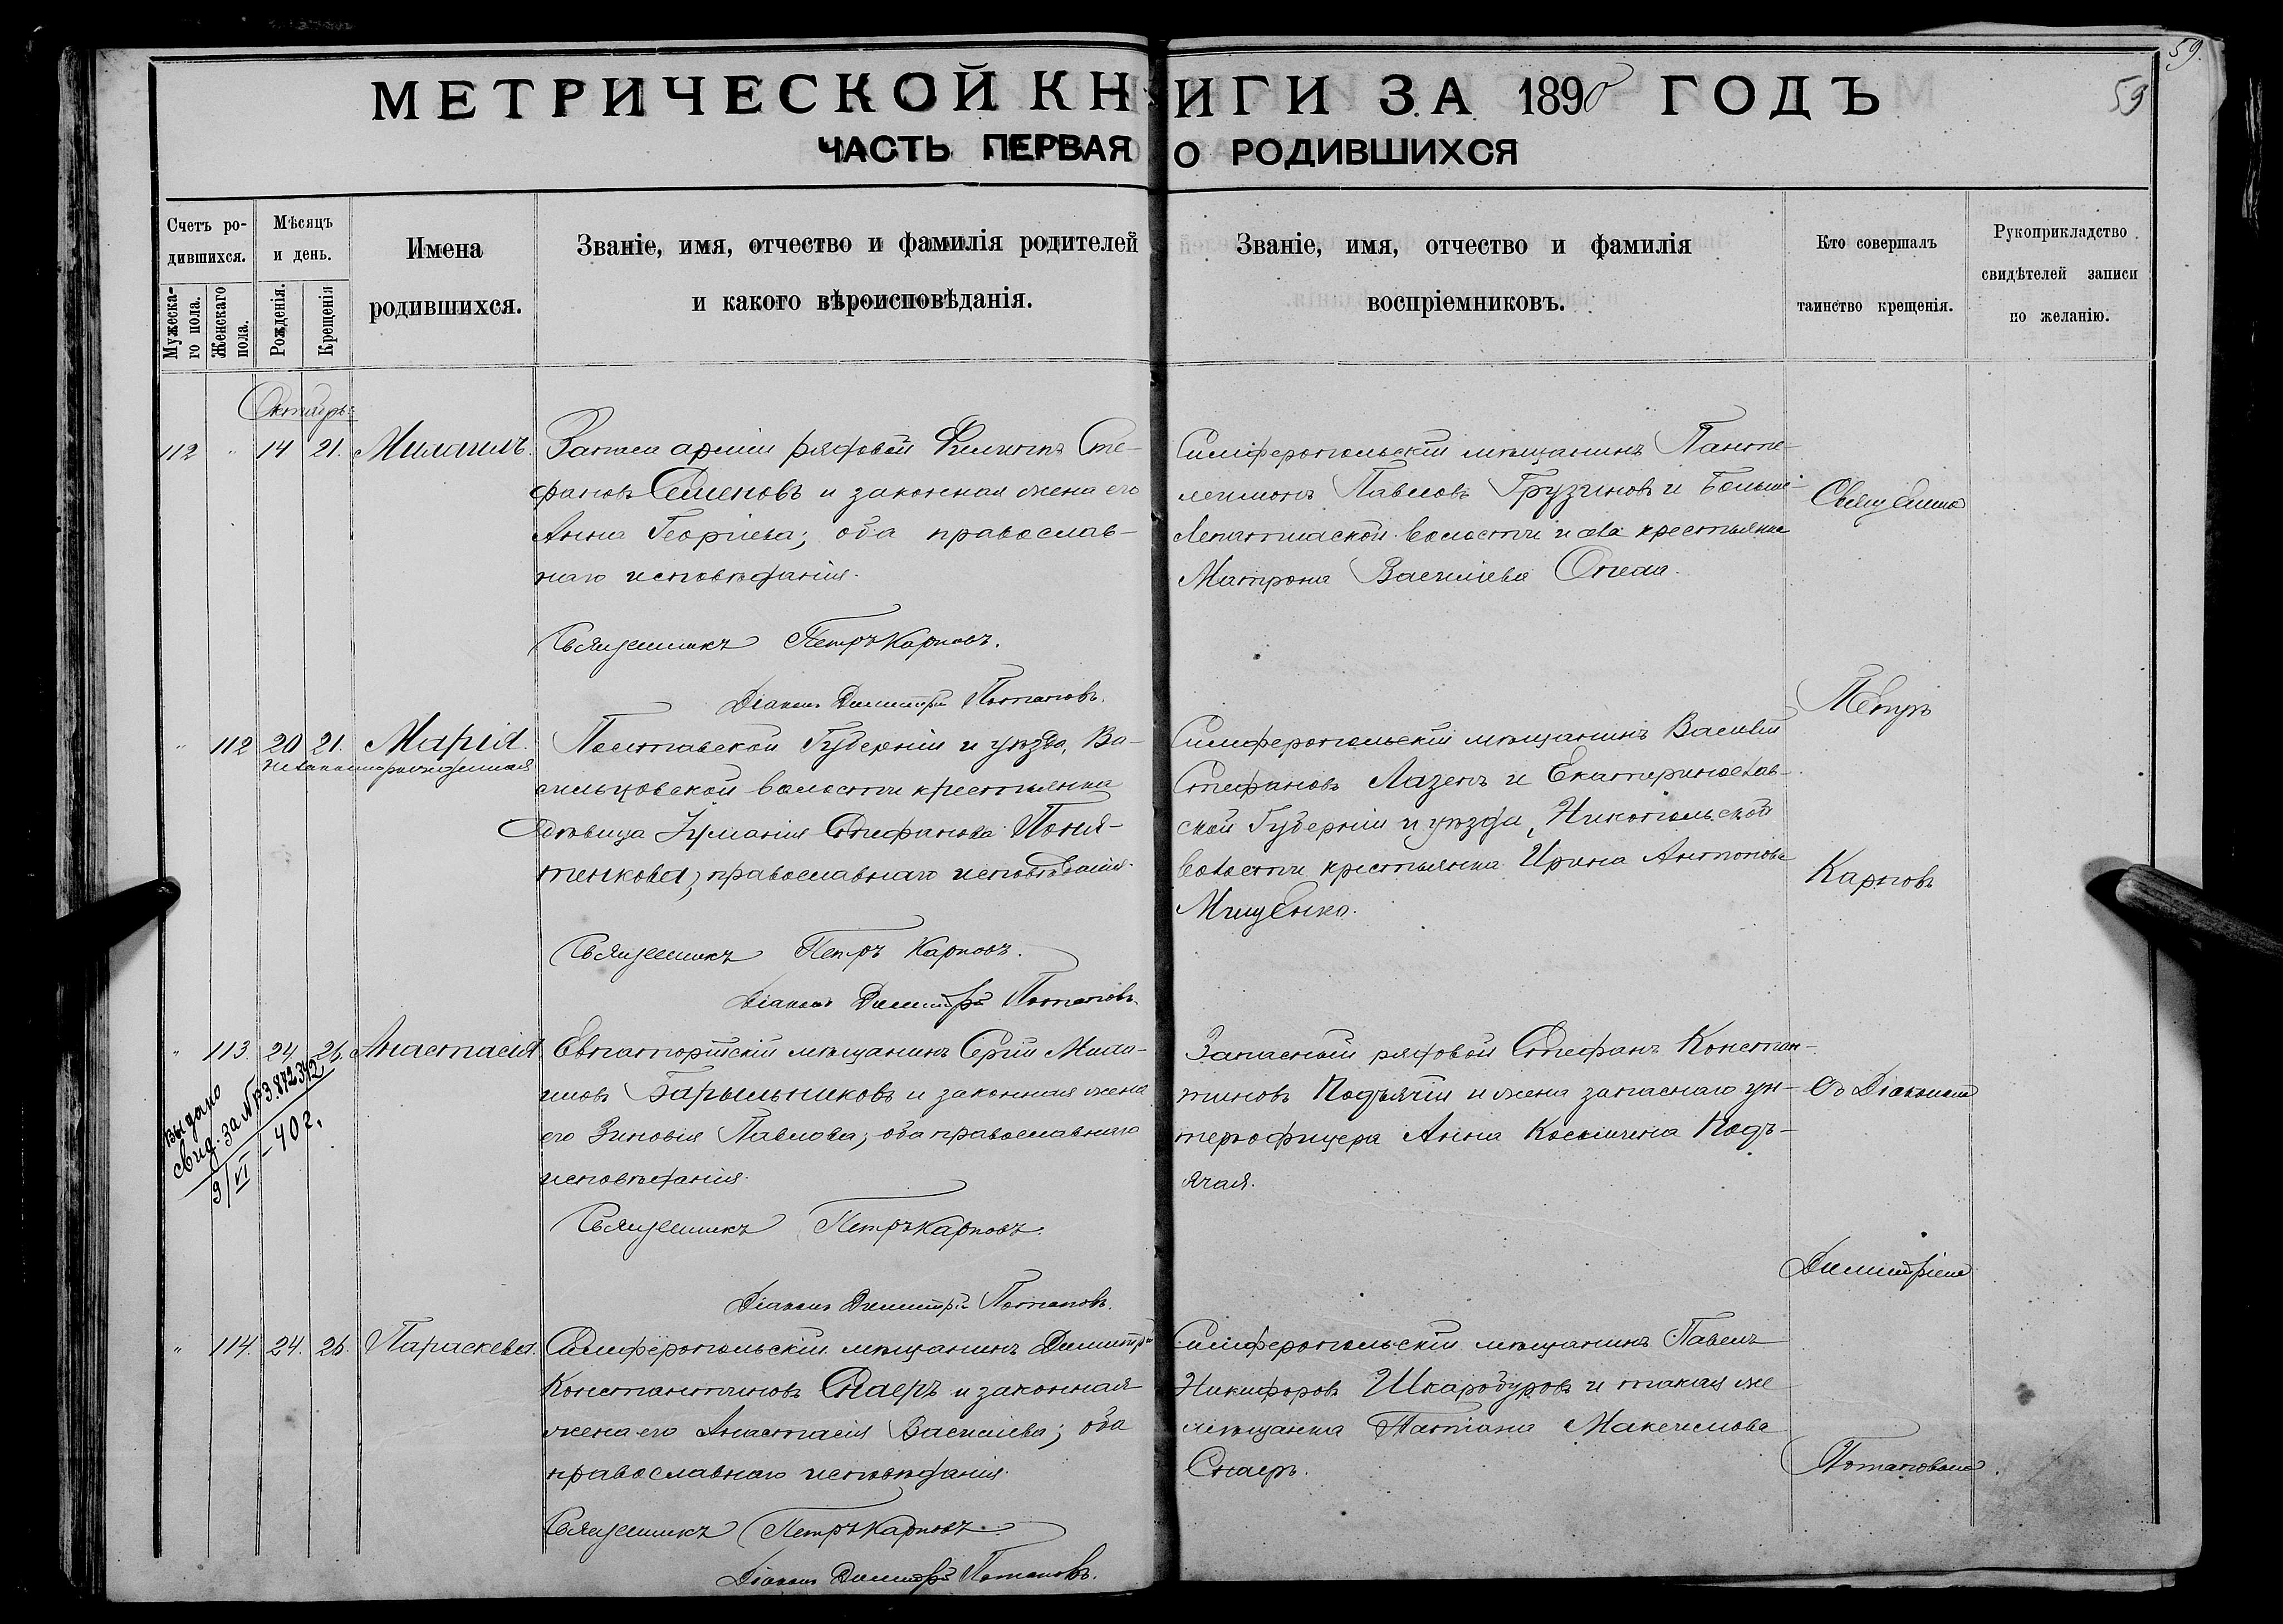 59.
59
МЕТРИЧЕСКОЙ КНИГИ ЗА 1890 ГОДЪ
ЧАСТЬ ПЕРВАЯ О РОДИВШИХСЯ
Счетъ ро-
дившихся.
Мужеска-
го пола.
Женскаго
пола.
Мѣсяцъ
и день.
Рожденія.
Крещенія
Имена
родившихся.
Званіе, имя, отчество и фамилія родителей
и какого вѣроисповѣданія.
Званіе, имя, отчество и фамилія
воспріемниковъ.
Кто совершалъ
таинство крещенія.
Рукоприкладство
свидѣтелей записи
по желанію.
Октябрь
112 " 14 21. Михаилъ.
Запаса арміи рядовой Филиппъ Сте-
фановъ Семеновъ и законная жена его
Анна Георгіева; оба православ-
наго исповѣданія.
Священникъ Петръ Карповъ.
Діаконъ Димитрій Потаповъ.
Симферопольскій мѣщанинъ Панте-
леимонъ Павловъ Грузиновъ и Больше-
волости и села крестьянка
Матрона Василіева
Священникъ
" 112 20 21. Марія.
незаконнорожденная
Полтавской Губерніи и уѣзда, Ва-
сильцовской волости крестьянка
дѣвица Іуліанія Стефанова Поня-
тенкова; православнаго исповѣданія.
Священникъ Петръ Карповъ.
Діаконъ Димитрій Потаповъ.
Симферопольскій мѣщанинъ Василій
Стефановъ Лазепъ и Екатеринослав-
ской Губерніи и уѣзда, Никопольской
волости крестьянка Ирина Антонова
Мищенко.
Петръ
Карповъ
" 113. 24. 26. Анастасія
Выдано
свид. за № РЗ.872342
9/VI - 40 г.
Евпаторійскій мѣщанинъ Сергій Михаи-
ловъ Барыльниковъ и законная жена
его Зиновія Павлова; оба православнаго
исповѣданія.
Священникъ Петръ Карповъ.
Діаконъ Димитрій Потаповъ.
Запасный рядовой Стефанъ Констан-
тиновъ Подъячій и жена запаснаго ун-
теръ-офицера Анна Космичева Подъ-
ячая.
Съ Діакономъ
Димитріемъ
" 114. 24. 26. Параскева.
Симферопольскій мѣщанинъ Димитрій
Константиновъ Снаеръ и законная
жена его Анастасія Василіева; оба
православнаго исповѣданія.
Священникъ Петръ Карповъ.
Діаконъ Димитрій Потаповъ.
Симферопольскій мѣщанинъ Павелъ
Никифоровъ Шкаробуровъ и такая же
мѣщанка Татіана
Снаеръ.
Потаповымъ.